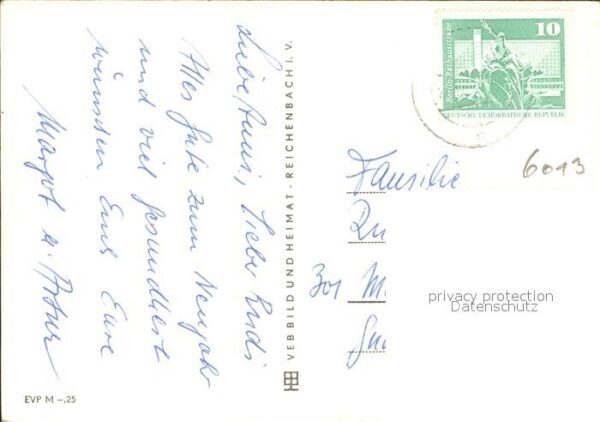 Alles Gute zum Neujahr
und viel Gesundheit
wünschen Euch Eure
Margot u. Artur
EVP M –,25
VEB BILD UND HEIMAT · REICHENBACH I. V.
Berlin-Rathausstraße
10
DEUTSCHE DEMOKRATISCHE REPUBLIK
6013
Familie
301 M
privacy protection
Datenschutz